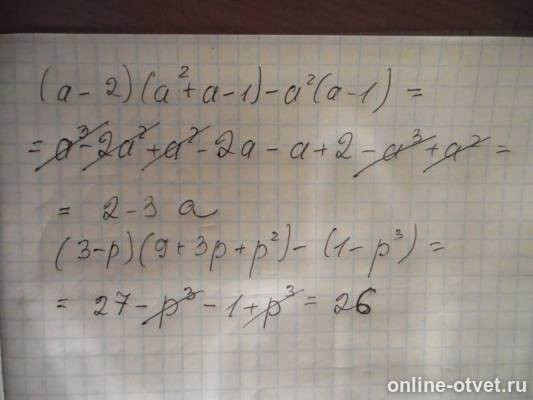 (a - 2)(a² + a - 1) - a²(a - 1) =
= a³ - 2a² + a² - 2a - a + 2 - a³ + a² =
= 2 - 3a
(3 - p)(9 + 3p + p²) - (1 - p³) =
= 27 - p³ - 1 + p³ = 26
online-otvet.ru